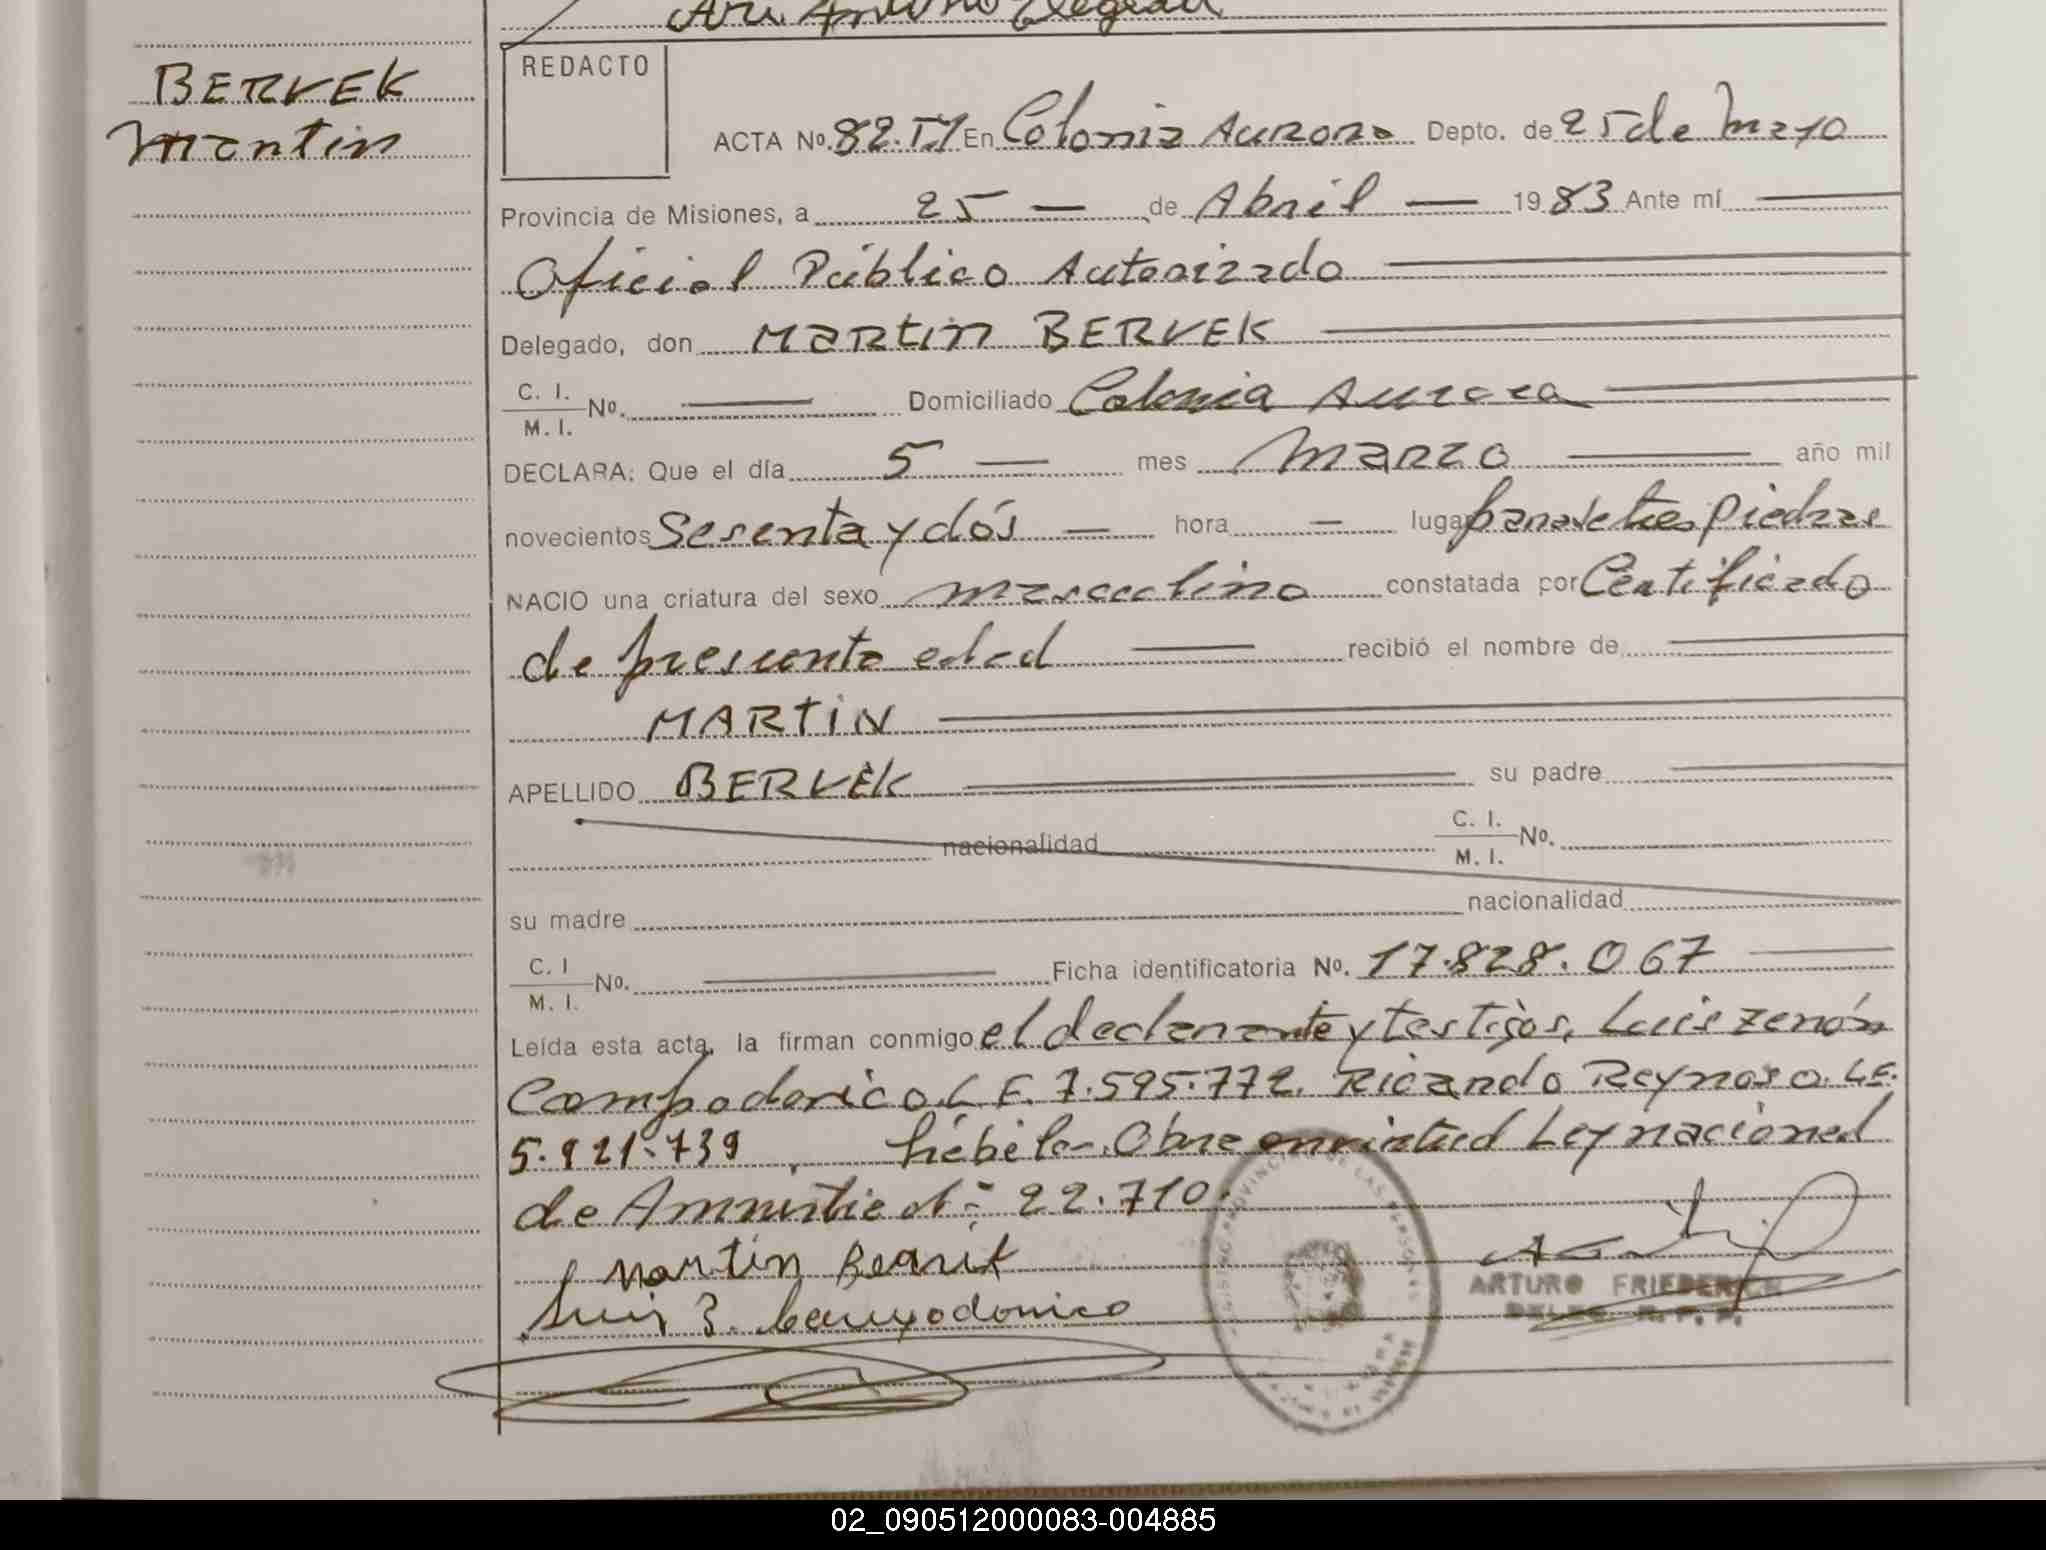 BERVEK
Martin
REDACTO
ACTA No. 82. T I En Colonia Aurora Depto. de 25 de Mayo
Provincia de Misiones, a 25 — de Abril — 1983 Ante mí —
Oficial Público Autorizado —
Delegado, don MARTIN BERVEK —
C. I. M. I. No. — Domiciliado Colonia Aurora —
DECLARA: Que el día 5 — mes Marzo — año mil
novecientos Sesenta y dós — hora — lugar tres Piedras
NACIO una criatura del sexo masculino constatada por Certificado
de presunta edad — recibió el nombre de —
MARTIN —
APELLIDO BERVEK — su padre —
nacionalidad C. I. M. I. No.
su madre nacionalidad
C. I M. I. No. — Ficha identificatoria No. 17.828.067 —
Leída esta acta, la firman conmigo el declarante y testigos, Luis zenón
Campodonico L E. 7.595.772. Ricardo Reynoso. L E.
5.921.739, hábiles. Obra en virtud Ley nacional
de Amnistia Nº 22.710.
Martin
Luis Z. Campodonico
ARTURO FRIEDERICH
DELEG. R. P. P.
02_090512000083-004885